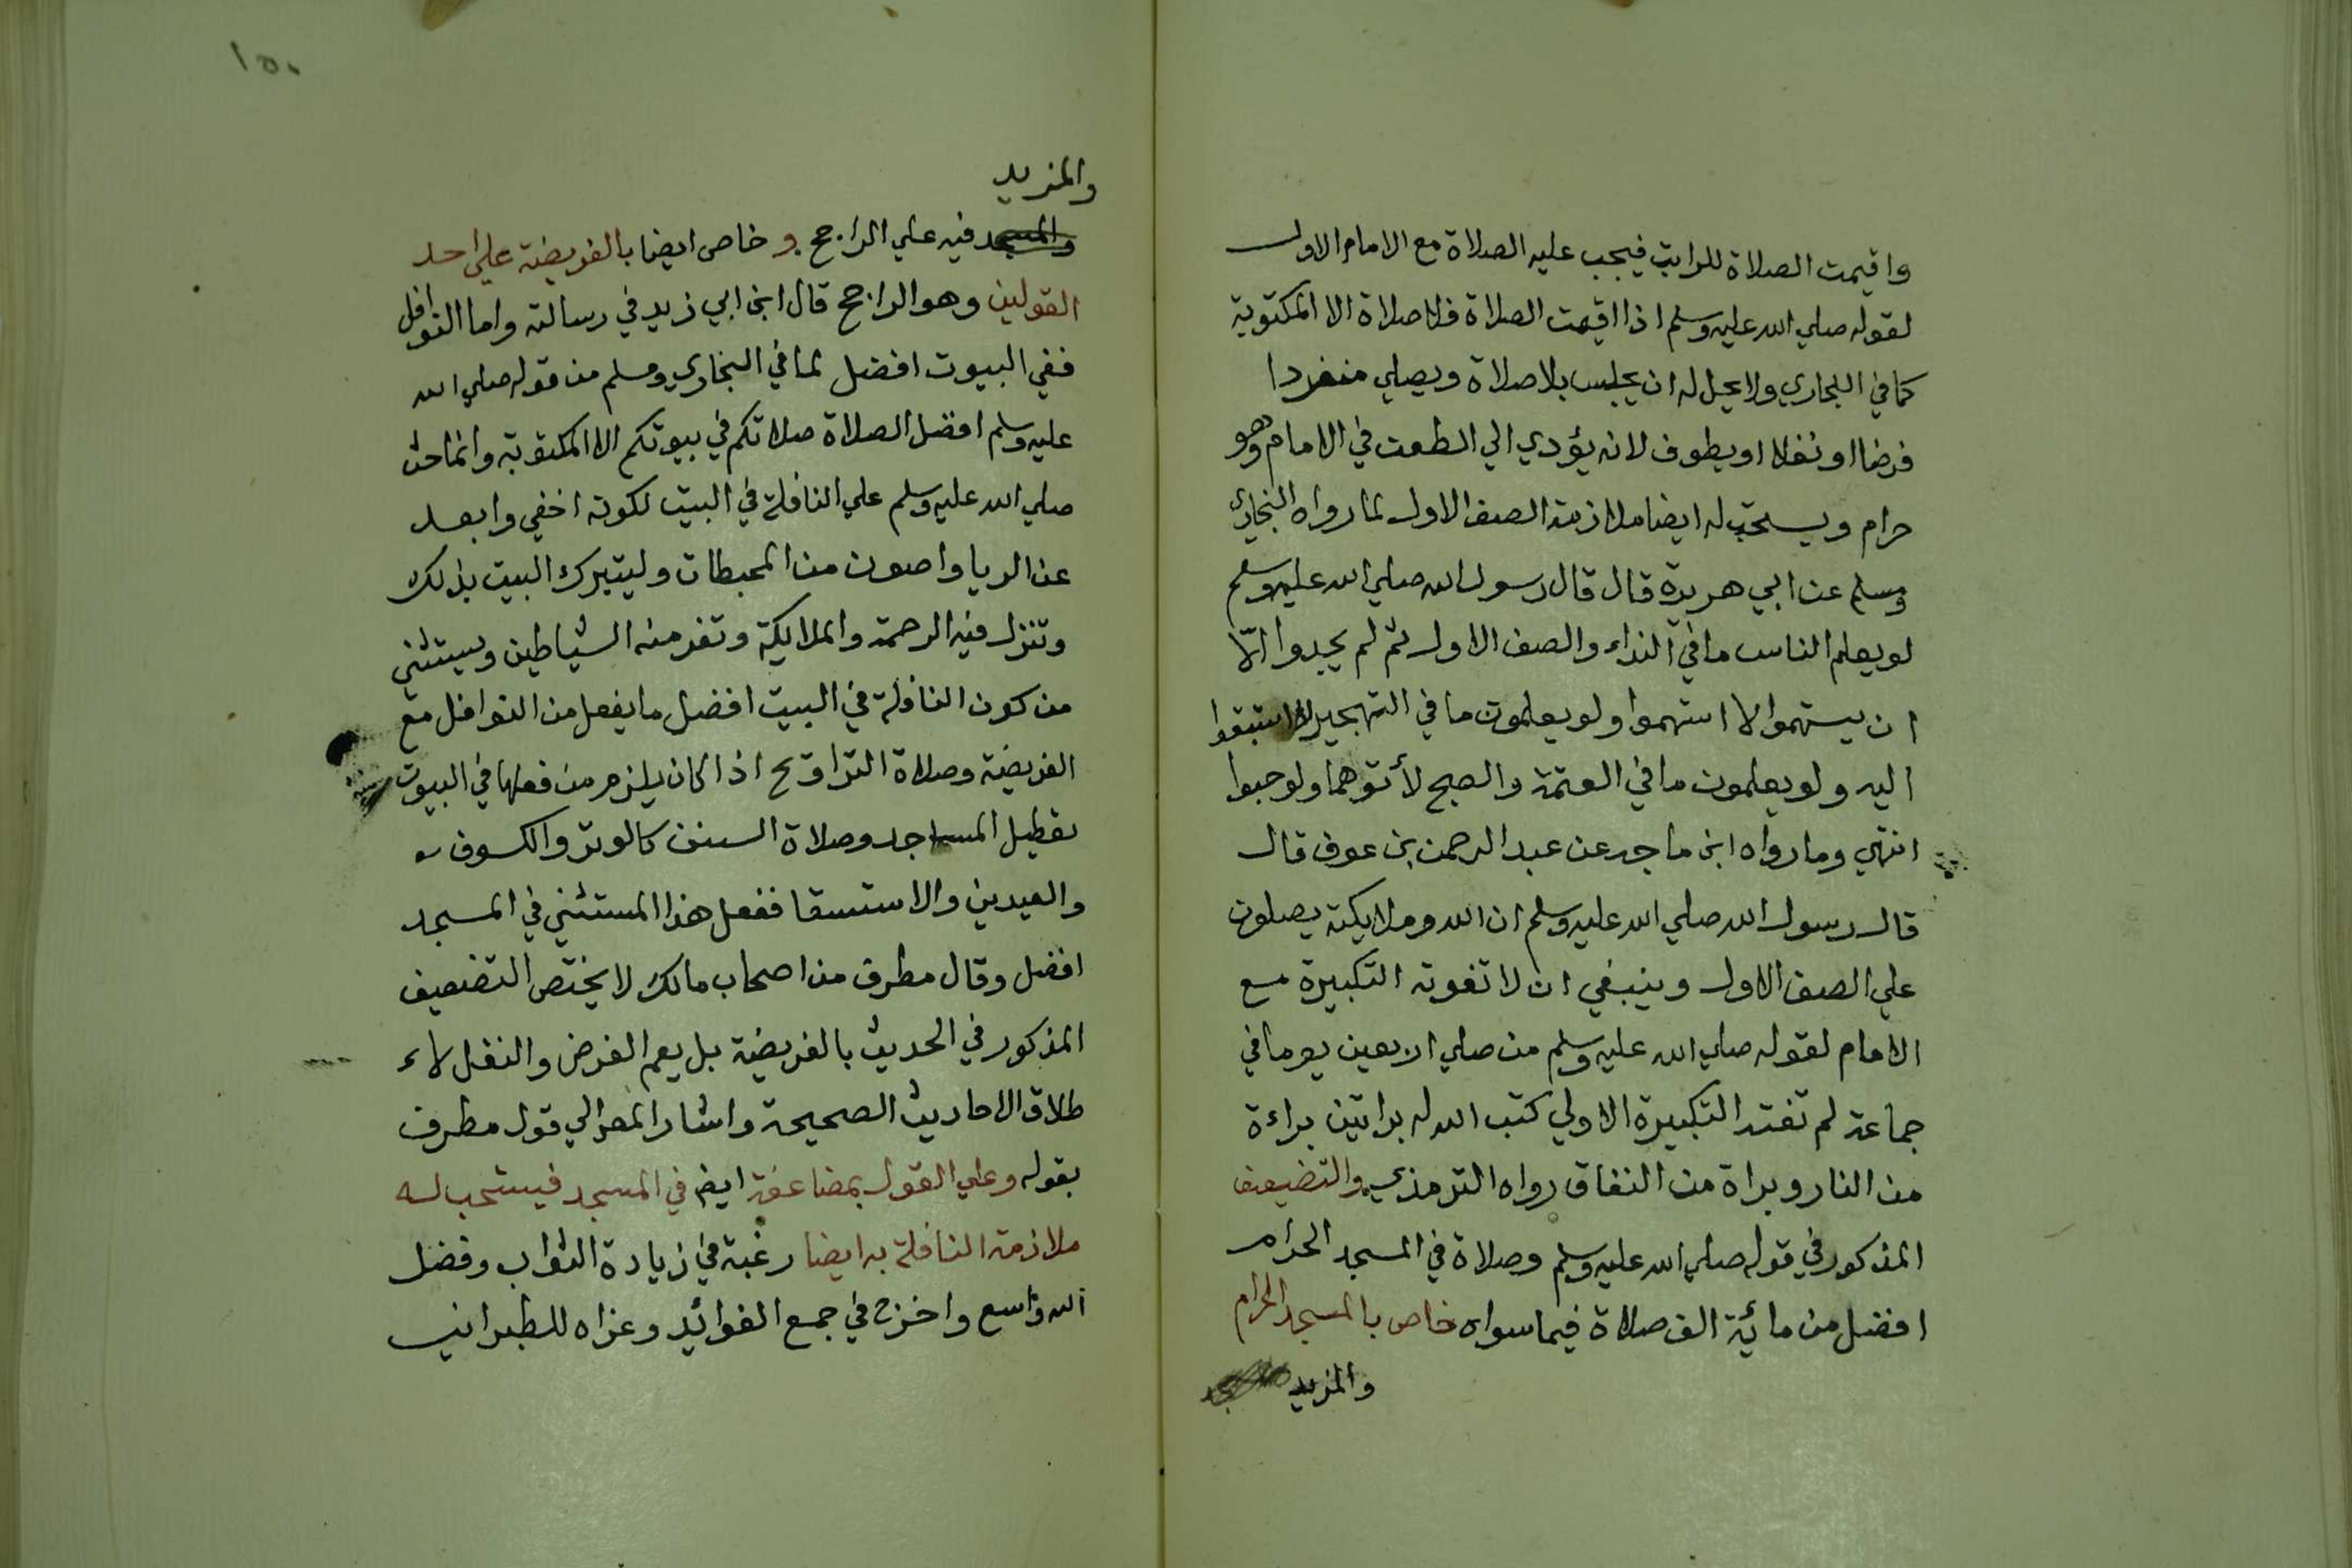 واقيمت الصلاة للراتب فيجب عليه الصلاة مع الامام الاول
لقوله صلي الله عليه وسلم اذا اقيمت الصلاة فلا صلاة الا المكتوبة
كما في البخاري ولا يحل له ان يجلس بلا صلاة ويصلي منفردا
فرضا او نفلا او يطوف لانه يؤدي الي الطعن في الامام وهو
حرام ويستحب له ايضا ملازمة الصف الاول لما رواه البخاري
ومسلم عن ابي هريرة قال قال رسول الله صلي الله عليه وسلم
لو يعلم الناس ما في النداء والصف الاول ثم لم يجدوا الّا
ان يستهموا لا استهموا ولو يعلمون ما في التهجير لاستبقوا
اليه ولو يعلمون ما في العتمة والصبح لأتوهما ولو حبوا
انتهي وما رواه ابن ماجه عن عبد الرحمن بن عوف قال
قال رسول الله صلي الله عليه وسلم ان الله وملايكته يصلون
علي الصف الاول وينبغي ان لا تفوته التكبيرة مع
الامام لقوله صلي الله عليه وسلم من صلي اربعين يوما في
جماعة لم تفته التكبيرة الاولي كتب الله له براتين براءة
من النار وبراة من النفاق رواه الترمذي والتضعيف
المذكور في قوله صلي الله عليه وسلم وصلاة في المسجد الحرام
افضل من مائية الف صلاة فيما سواه خاص بالمسجد الحرام
والمزيد
١٥٠
والمزيد
والمسجد فيه علي الراجح و خاص ايضا بالفريضة علي احد
القولين وهو الراجح قال ابن ابي زيد في رسالته واما النوافل
ففي البيوت افضل لما في البخاري ومسلم من قوله صلي الله
عليه وسلم افضل الصلاة صلاتكم في بيوتكم الا المكتوبة وانما حث
صلي الله عليه وسلم علي النافلة في البيت لكونه اخفي وابعد
عن الريا واصون من المحبطات وليتبرك البيت بذلك
وتنزل فيه الرحمة والملايكة وتفر منه الشياطين ويستثني
من كون النافلة في البيت افضل ما يفعل من النوافل مع
الفريضة وصلاة التراويح اذا كان يلزم من فعلها في البيوت
تعطيل المساجد وصلاة السنن كالوتر والكسوف
والعيدين والاستسقا ففعل هذا المستثني في المسجد
افضل وقال مطرف من اصحاب مالك لا يختص التضعيف
المذكور في الحديث بالفريضة بل يعم الفرض والنفل لاء
طلاق الاحاديث الصحيحة واشار المص الي قول مطرف
بقوله وعلي القول بمضاعفة ايض في المسجد فيستحب له
ملازمة النافلة به ايضا رغبة في زيادة الثواب وفضل
الله واسع واخرج في جمع الفوائد وعزاه للطبراني